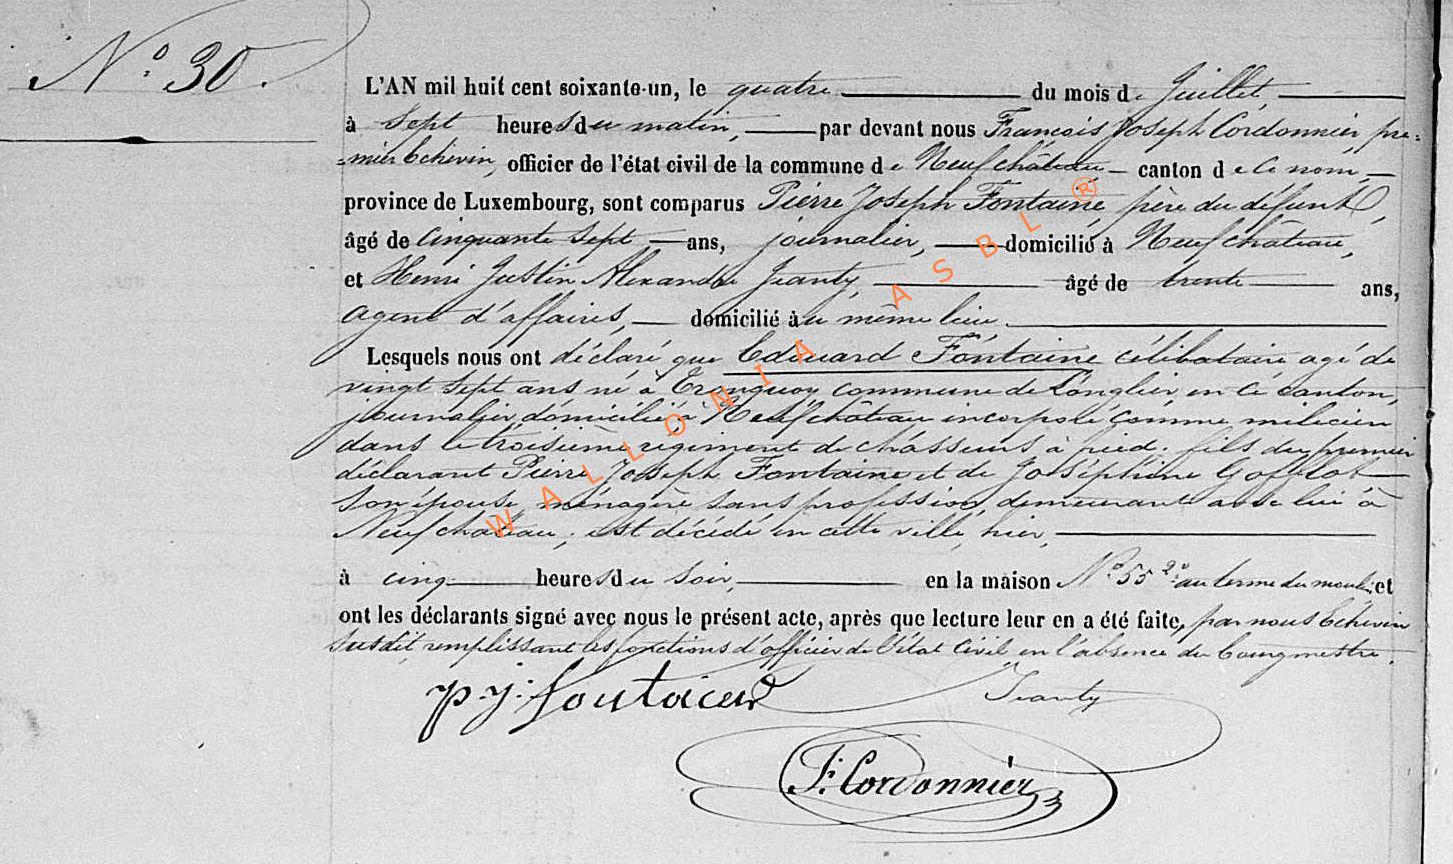 N° 30.
L'AN mil huit cent soixante-un, le quatre du mois de Juillet,
à sept heures du matin, par devant nous François Joseph Cordonnier, pre-
-mier Echevin, officier de l'état civil de la commune de Neufchâteau canton de ce nom,
province de Luxembourg, sont comparus Pierre Joseph Fontaine, père du défunt,
âgé de cinquante sept ans, journalier, domicilié à Neufchâteau,
et Henri Justin Alexandre Jeanty, âgé de trente ans,
agent d'affaires, domicilié au même lieu.
Lesquels nous ont déclaré que Edouard Fontaine célibataire agé de
vingt sept ans né à commune de Longlier, en ce canton,
journalier, domicilié à Neufchâteau incorporé comme milicien
dans le troisième régiment de chasseurs à pied. fils du premier
déclarant Pierre Joseph Fontaine et de Joséphine Goffelot
son épouse, ménagère sans profession, demeurant avec lui à
Neufchateau, est décédé en cette ville, hier,
à cinq heures du soir, en la maison N° 55 2° au terme du moulin et
ont les déclarants signé avec nous le présent acte, après que lecture leur en a été faite, par nous Echevin
susdit, remplissant les fonctions d'officier de l'état civil en l'absence du bourgmestre.
p.j. fontaine Jeanty
F. Cordonnier
WALLONIA ASBL ®